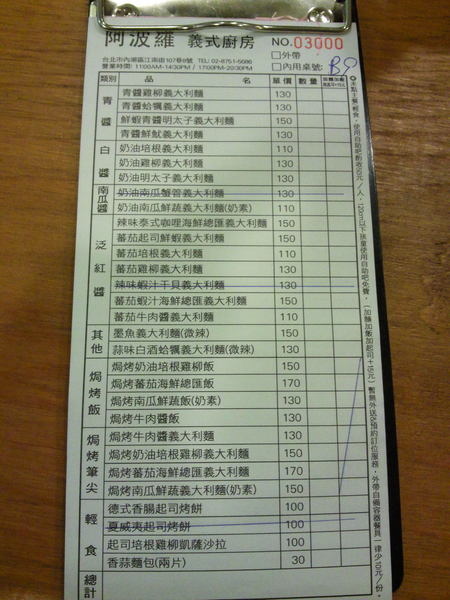 阿波羅 義式廚房 NO.03000
台北市內湖區江南街107巷8號 TEL: 02-8751-5686
營業時間: 11:00AM~14:30PM / 17:00PM~20:30PM
□外帶
□內用桌號: B9
類別 品 名 單價 數量
青醬
青醬雞柳義大利麵 130
青醬蛤蠣義大利麵 130
鮮蝦青醬明太子義大利麵 150
青醬鮮魷義大利麵 130
白醬
奶油培根義大利麵 110
奶油雞柳義大利麵 130
奶油明太子義大利麵 130
南瓜醬
奶油南瓜蟹管義大利麵 130
奶油南瓜鮮蔬義大利麵(奶素) 110
泛紅醬
辣味泰式咖哩海鮮總匯義大利麵 150
蕃茄起司鮮蝦義大利麵 150
蕃茄培根義大利麵 110
蕃茄雞柳義大利麵 130
辣味蝦汁干貝義大利麵 130
蕃茄蝦汁海鮮總匯義大利麵 150
蕃茄牛肉醬義大利麵 110
其他
墨魚義大利麵(微辣) 150
蒜味白酒蛤蠣義大利麵(微辣) 130
焗烤飯
焗烤奶油培根雞柳飯 150
焗烤蕃茄海鮮總匯飯 170
焗烤南瓜鮮蔬飯(奶素) 130
焗烤牛肉醬飯 130
焗烤筆尖
焗烤牛肉醬義大利麵 130
焗烤奶油培根雞柳義大利麵 150
焗烤蕃茄海鮮總匯義大利麵 170
焗烤南瓜鮮蔬義大利麵(奶素) 150
輕食
德式香腸起司烤餅 100
夏威夷起司烤餅 100
起司培根雞柳凱薩沙拉 100
香蒜麵包(兩片) 30
總計